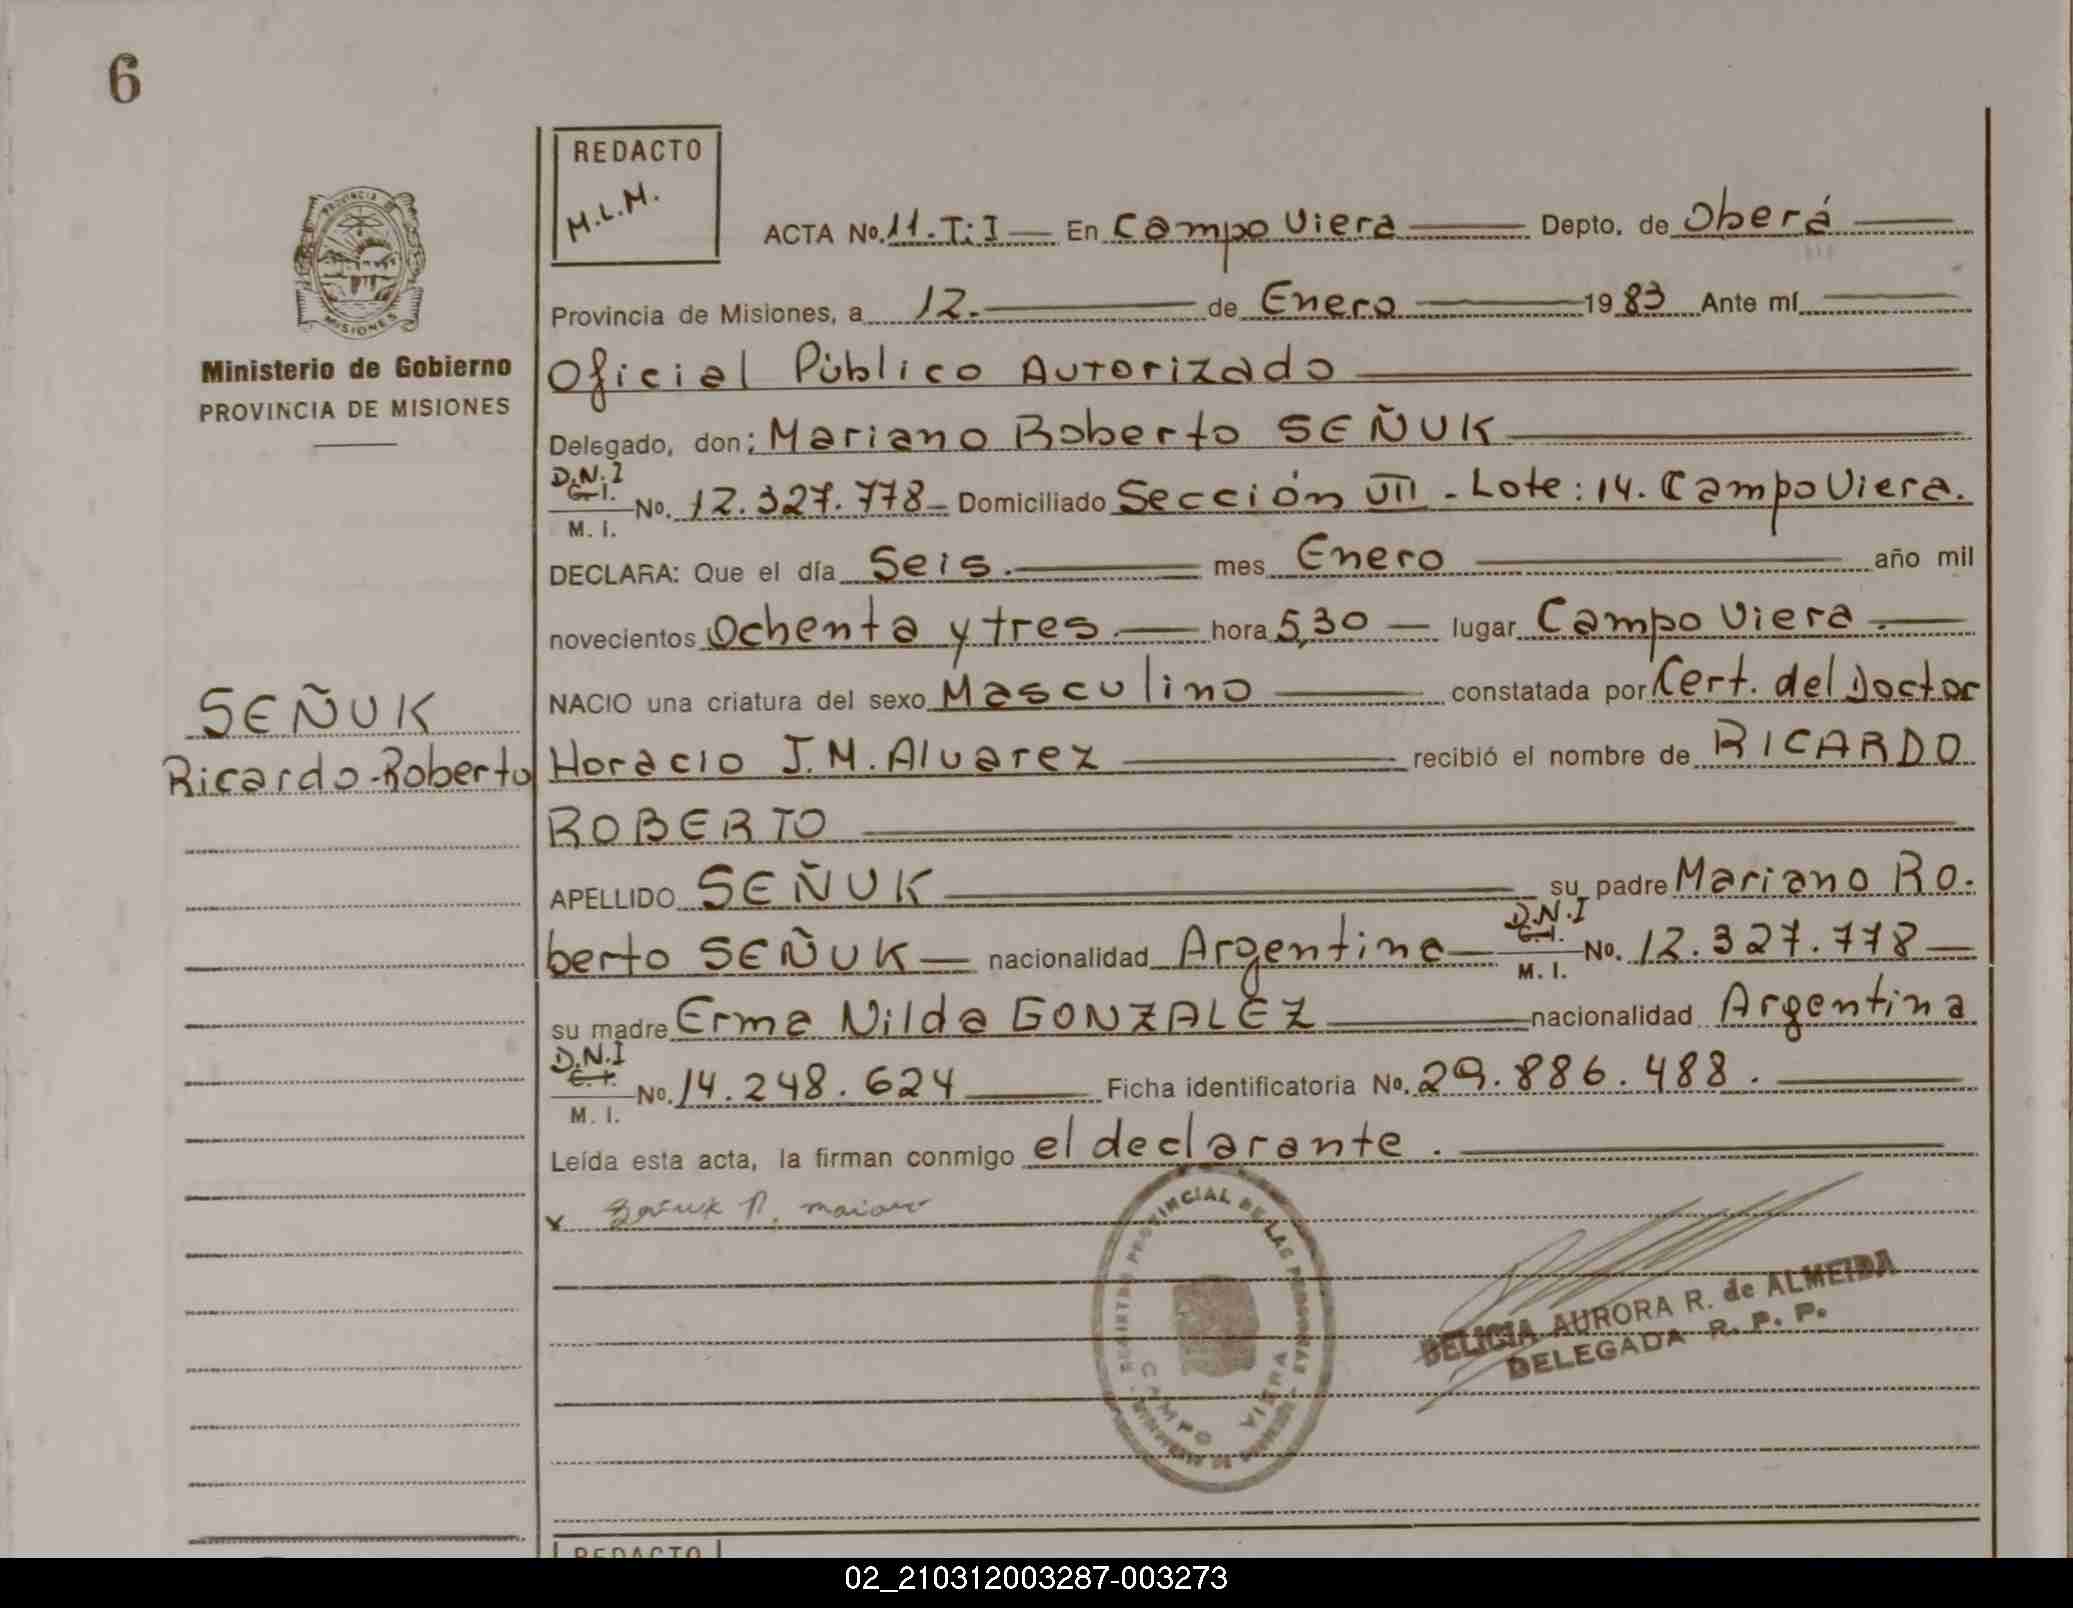 6
REDACTO
M.L.M.
ACTA No. 11. T: I En Campo Viera Depto. de Oberá
Provincia de Misiones, a 12. de Enero 1983 Ante mí
Oficial Público Autorizado
Delegado, don: Mariano Roberto SEÑUK
D.N.I
C.I.
M. I. No. 12.327.778 Domiciliado Sección VII - Lote: 14. Campo Viera.
DECLARA: Que el día Seis. mes Enero año mil
novecientos Ochenta y tres hora 5,30 lugar Campo Viera.
NACIO una criatura del sexo Masculino constatada por Cert. del Doctor
Horacio J. M. Alvarez recibió el nombre de RICARDO
ROBERTO
APELLIDO SEÑUK su padre Mariano Ro.
berto SEÑUK nacionalidad Argentina D.N.I C.I. M. I. No. 12.327.778
su madre Erma Nilda GONZALEZ nacionalidad Argentina
D.N.I
C.I.
M. I. No. 14.248.624 Ficha identificatoria No. 29.886.488.
Leída esta acta, la firman conmigo el declarante.
x Señuk R.
PROVINCIA DE
MISIONES
Ministerio de Gobierno
PROVINCIA DE MISIONES
SEÑUK
Ricardo-Roberto
REGISTRO PROVINCIAL DE LAS PERSONAS
CAMPO VIERA
DELICIA AURORA R. de ALMEIDA
DELEGADA R. P. P.
REDACTO
02_210312003287-003273